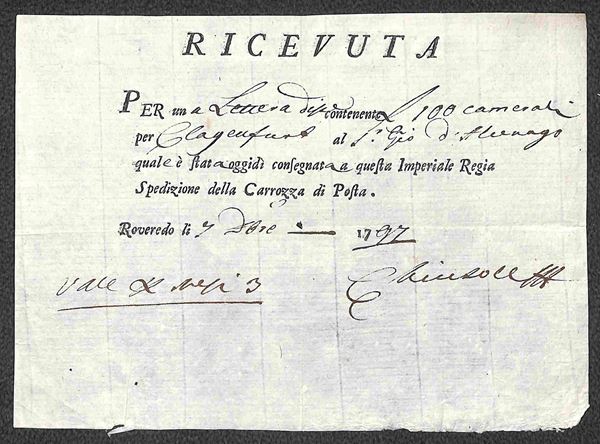 RICEVUTA
PER una Lettera contenente f 100 camerali
per Clagenfurt al S.r Gio d'
quale è stata oggidì consegnata a questa Imperiale Regia
Spedizione della Carrozza di Posta.
Roveredo li 7 Xbre 1797
vale x mesi 3
Chiusole